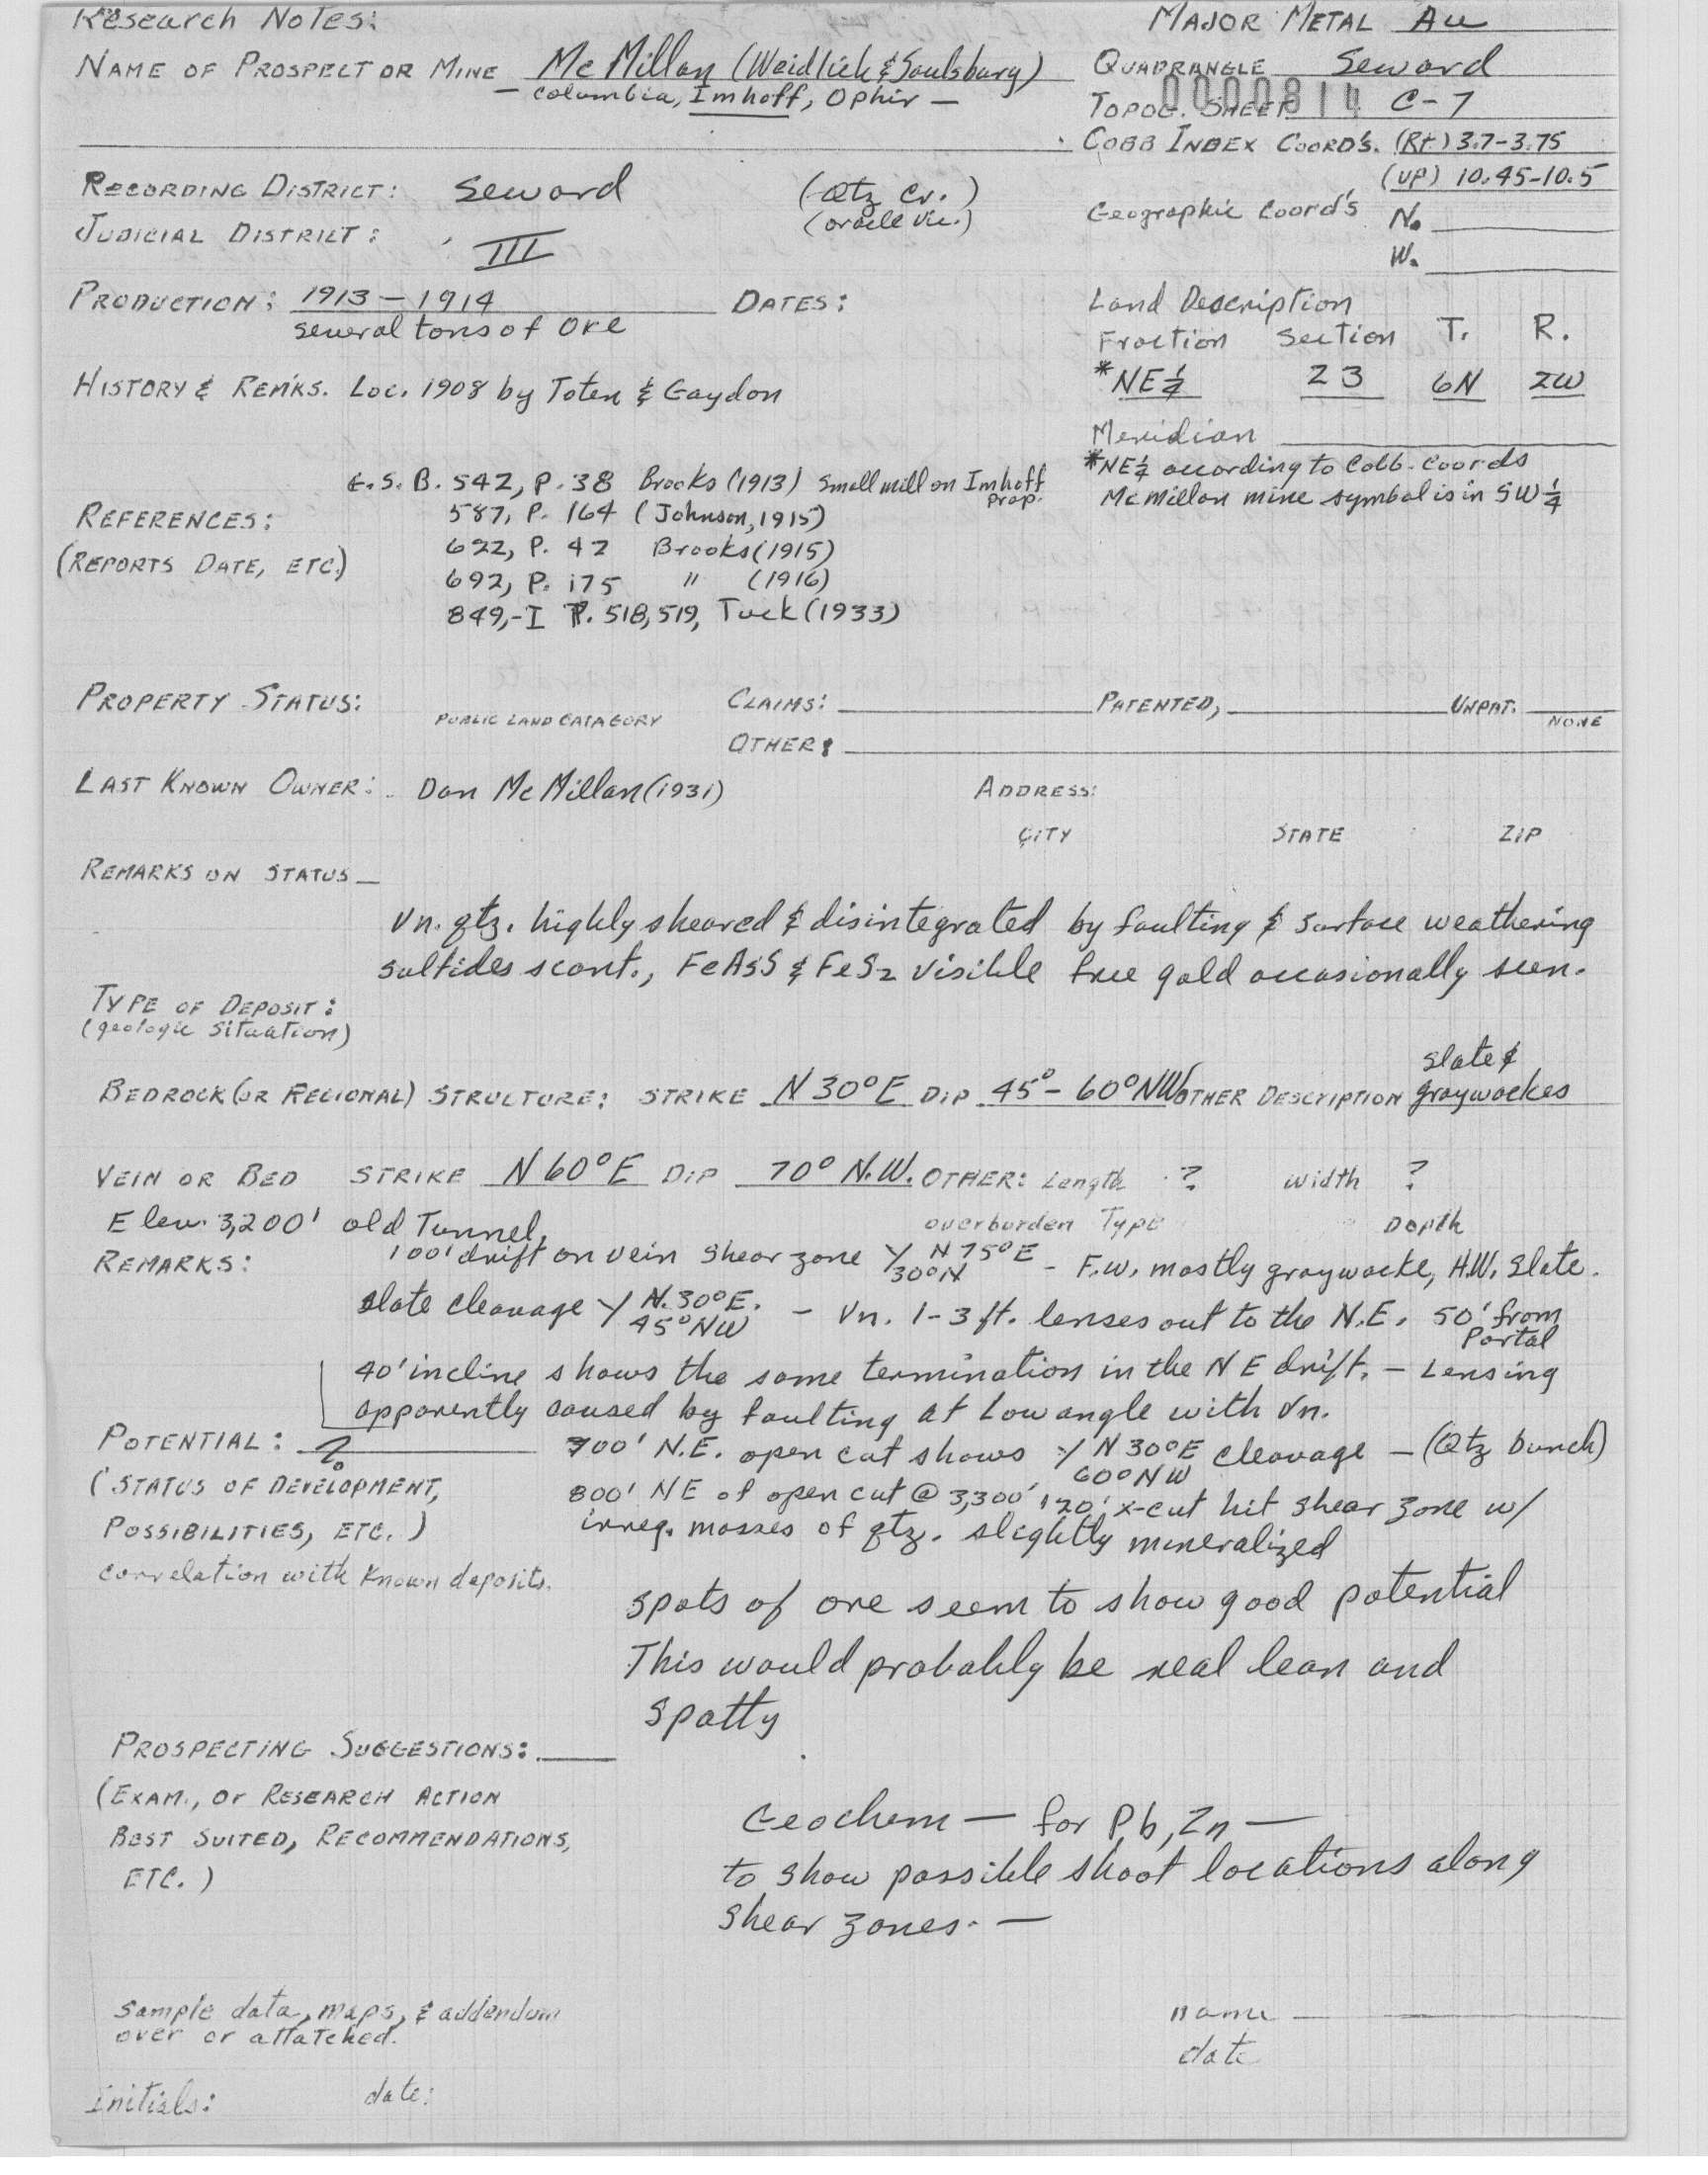 Research Notes:
MAJOR METAL Au
NAME OF PROSPECT OR MINE Mc Millan (Weidlick & Saulsbury)
— Columbia, Imhoff, Ophir —
QUADRANGLE Seward
0000814
TOPOG. SHEET C-7
COBB INDEX COORD'S. (Rt) 3.7-3.75
(UP) 10.45-10.5
RECORDING DISTRICT: Seward
(Qtz Cr.)
(oracle vic.)
Geographic Coord's N.
W.
JUDICIAL DISTRICT: III
PRODUCTION: 1913 - 1914 DATES:
several tons of Ore
Land Description
Fraction Section T. R.
*NE¼ 23 6N 2W
HISTORY & REMKS. Loc. 1908 by Toten & Gaydon
Meridian
*NE¼ according to Cobb. coords
McMillan mine symbol is in SW¼
REFERENCES:
(REPORTS DATE, ETC.)
G.S. B. 542, P. 38 Brooks (1913) Small mill on Imhoff prop.
587, P. 164 (Johnson, 1915)
622, P. 42 Brooks (1915)
692, P. 175 " (1916)
849,-I P. 518,519, Tuck (1933)
PROPERTY STATUS: CLAIMS: PATENTED, UNPAT.
PUBLIC LAND CATAGORY NONE
OTHER:
LAST KNOWN OWNER: Dan McMillan (1931) ADDRESS:
CITY STATE ZIP
REMARKS ON STATUS —
Vn. qtz. highly sheared & disintegrated by faulting & surface weathering
sulfides scant., FeAsS & FeS2 visible free gold occasionally seen.
TYPE OF DEPOSIT:
(geologic situation)
BEDROCK (OR REGIONAL) STRUCTURE: STRIKE N 30° E DIP 45° - 60° NW OTHER DESCRIPTION slate & graywackes
VEIN OR BED STRIKE N 60° E DIP 70° N.W. OTHER: Length ? width ?
Elev. 3,200' old Tunnel,
overburden Type Depth
REMARKS: 100' drift on vein shear zone N 75° E 30° N - F.W. mostly graywacke, H.W. slate.
slate cleavage N. 30° E. 45° NW - Vn. 1-3 ft. lenses out to the N.E. 50' from Portal
40' incline shows the same termination in the NE drift. - Lensing
apparently caused by faulting at low angle with Vn.
POTENTIAL: ?
(STATUS OF DEVELOPMENT,
POSSIBILITIES, ETC.)
correlation with known deposits.
700' N.E. open cut shows N 30° E 60° NW cleavage - (Qtz bunch)
800' NE of open cut @ 3,300' 120' x-cut hit shear zone w/
irreg. masses of qtz. slightly mineralized
spots of ore seem to show good potential
This would probably be real lean and
spotty
PROSPECTING SUGGESTIONS:
(EXAM., Or RESEARCH ACTION
BEST SUITED, RECOMMENDATIONS,
ETC.)
Geochem — for Pb, Zn —
to show possible shoot locations along
shear zones. —
sample data, maps, & addendum
over or attatched.
name
date
Initials: date: